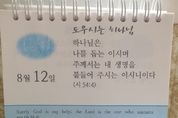 도우시는 하나님
하나님은
나를 돕는 이시며
주께서는 내 생명을
붙들어 주시는 이시니이다
(시 54:4)
8월 12일
Surely God is my help; the Lord is the one who sustains